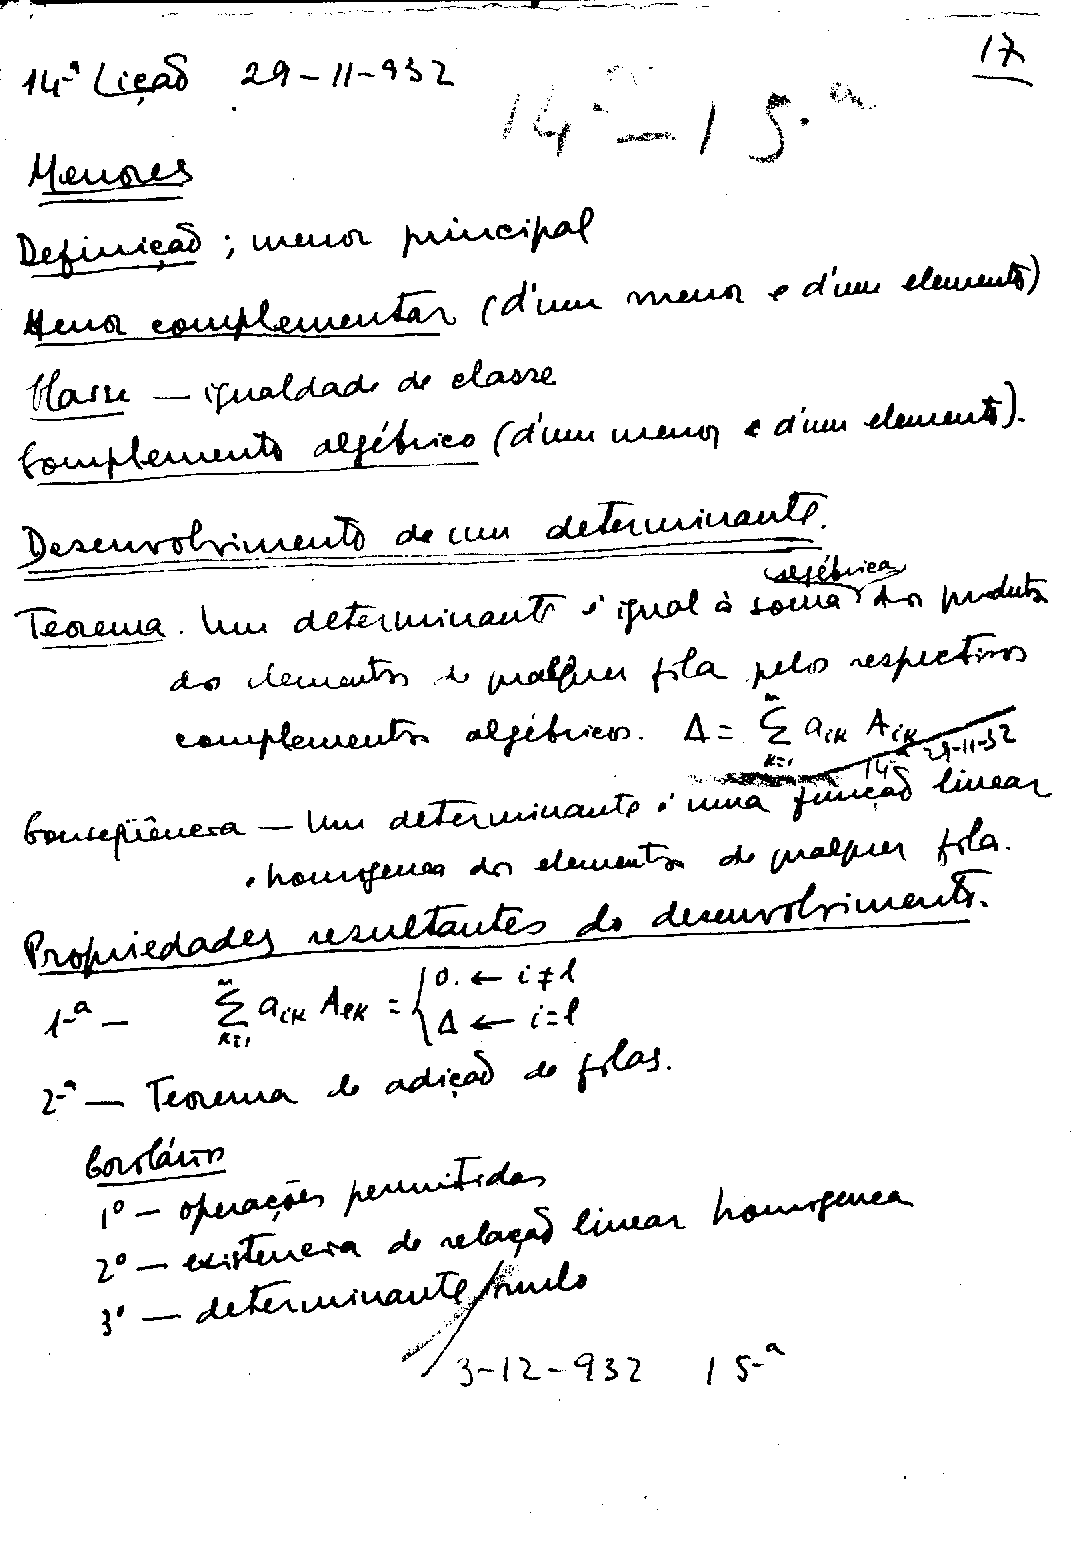 17
14-ª Lição 29-11-932
14ª - 15.ª
Menores
Definição; menor principal
Menor complementar (d'um menor e d'um elemento)
Classe — igualdade de classe
Complemento algébrico (d'um menor e d'um elemento).
Desenvolvimento de um determinante.
algébrica
Teorema. Um determinante é igual à soma dos produtos
dos elementos de qualquer fila pelos respectivos
complementos algébricos. Δ = Σ_{k=1}^{n} a_{ik} A_{ik}
14-ª 29-11-32
Conseqüência — Um determinante é uma função linear
e homogenea dos elementos de qualquer fila.
Propriedades resultantes do desenvolvimento.
1-ª — Σ_{k=1}^{n} a_{ik} A_{lk} = { 0. ← i ≠ l
Δ ← i = l
2-ª — Teorema de adição de filas.
Corolários
1º — operações permitidas
2º — existencia de relação linear homogenea
3º — determinante nulo
3-12-932 15-ª